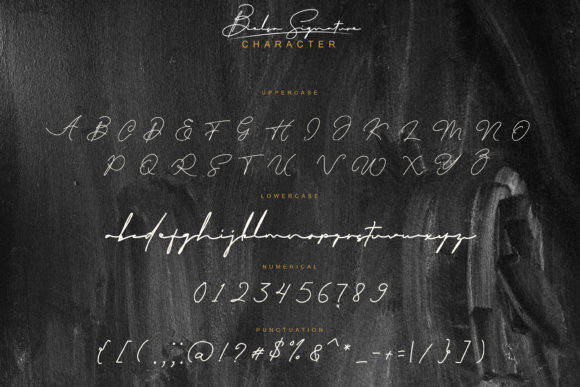 Signature
CHARACTER
UPPERCASE
A B C D E F G H I J K L M N O
P Q R S T U V W X Y Z
LOWERCASE
abcdefghijklmnopqrstuvwxyz
NUMERICAL
0123456789
PUNCTUATION
{ [ ( . , ; : @ ! ? # $ % & ^ * _ - + = | / } ] )